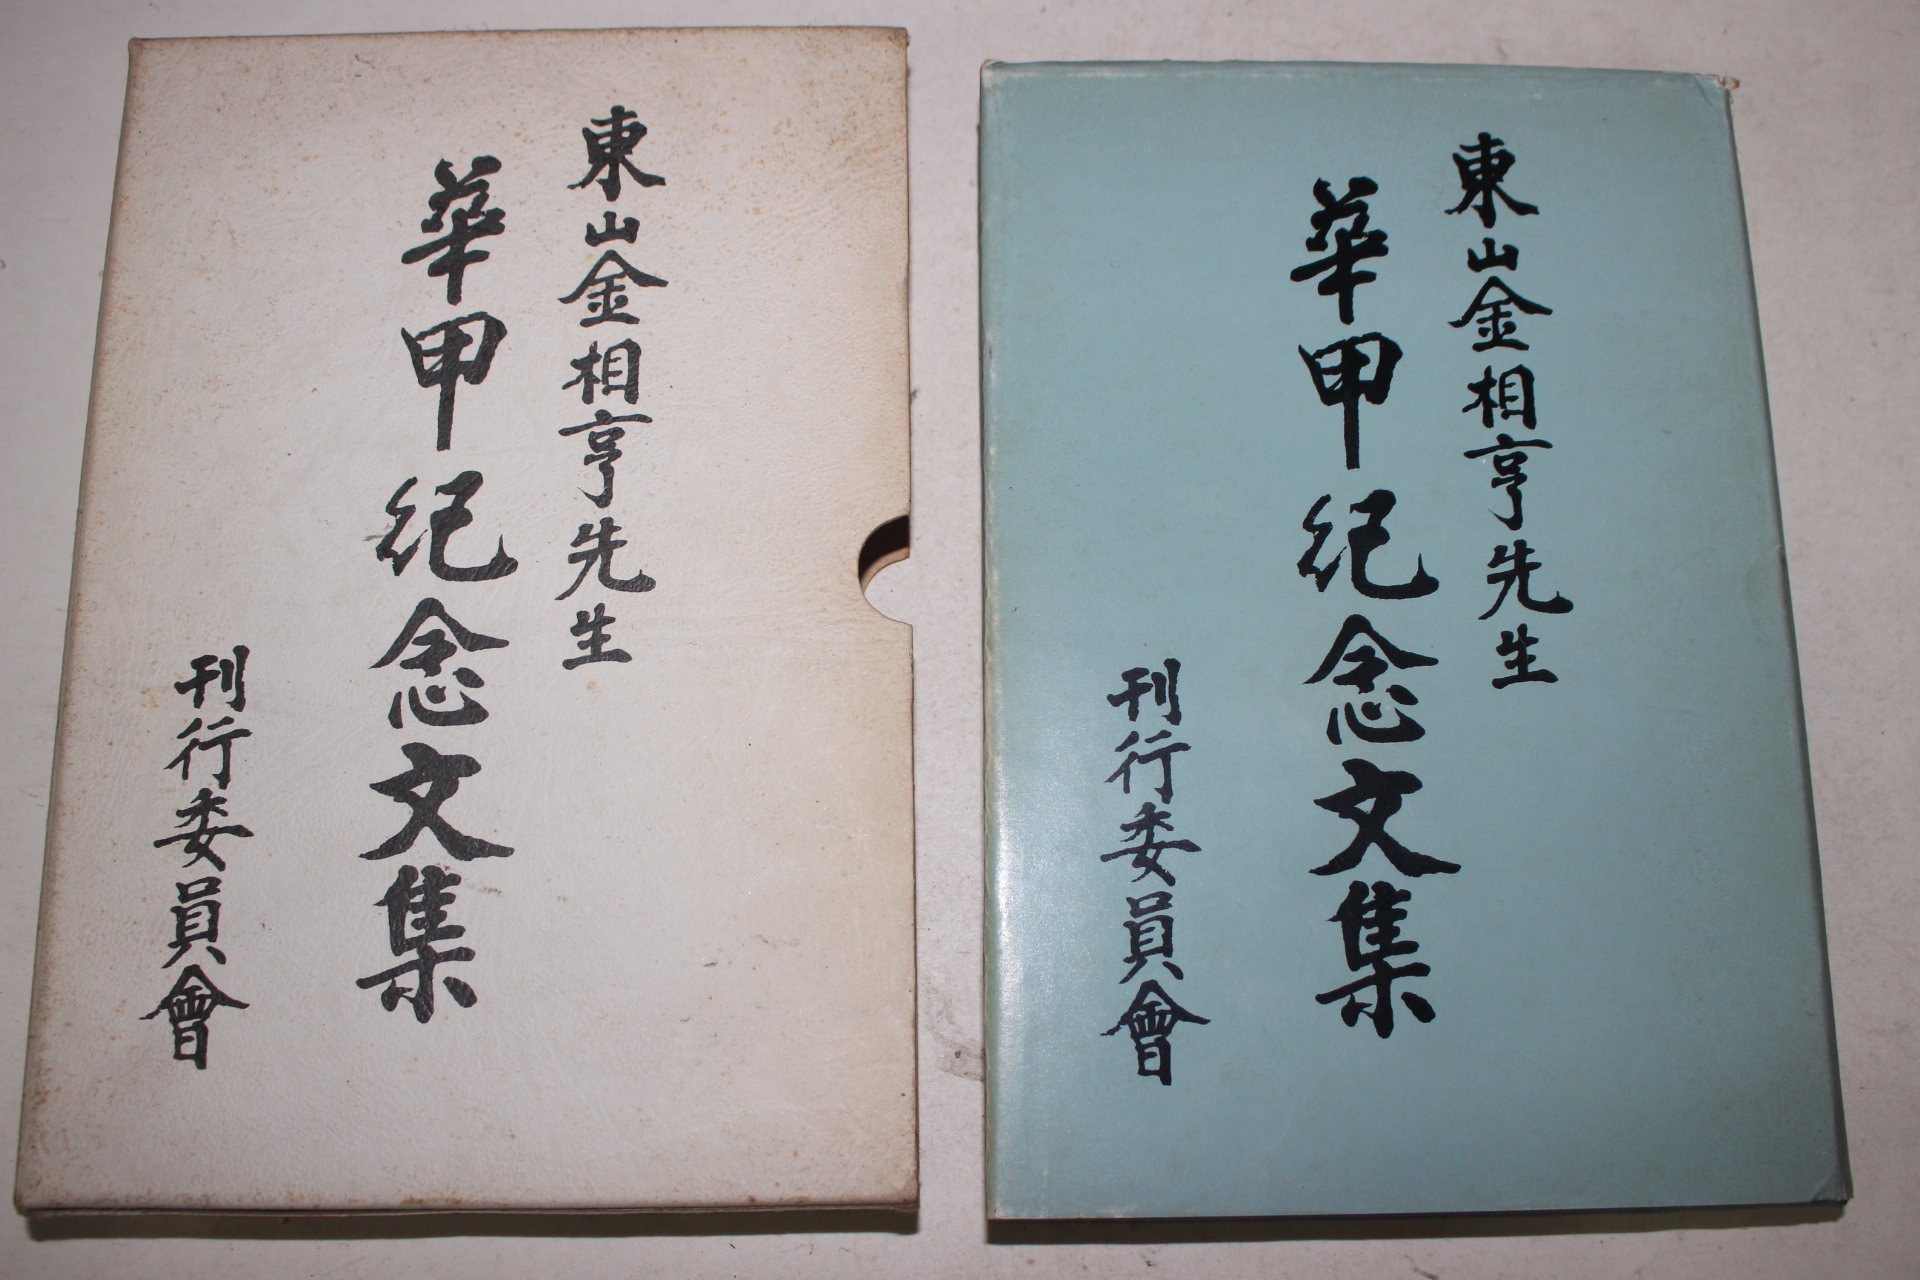 東山金相亨先生
華甲紀念文集
刊行委員會
東山金相亨先生
華甲紀念文集
刊行委員會